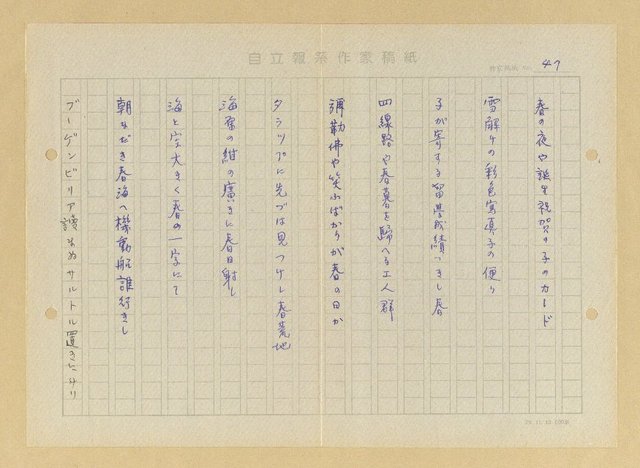 自立報系作家稿紙
47
春の夜や誕生祝賀の子のカード
雪解けの彩色写真子の便り
子が寄する留学成績つきし春
四線路や春暮を歸へる工人群
彌勒佛や笑ふばかりが春の日か
タラップに先づは見つけし春荒地
海軍の紺の廣きに春日射し
海と空大きく春の一字にて
朝まだき春海へ機動船誰行きし
ブーゲンビリア護るぬサルトル置きにけり